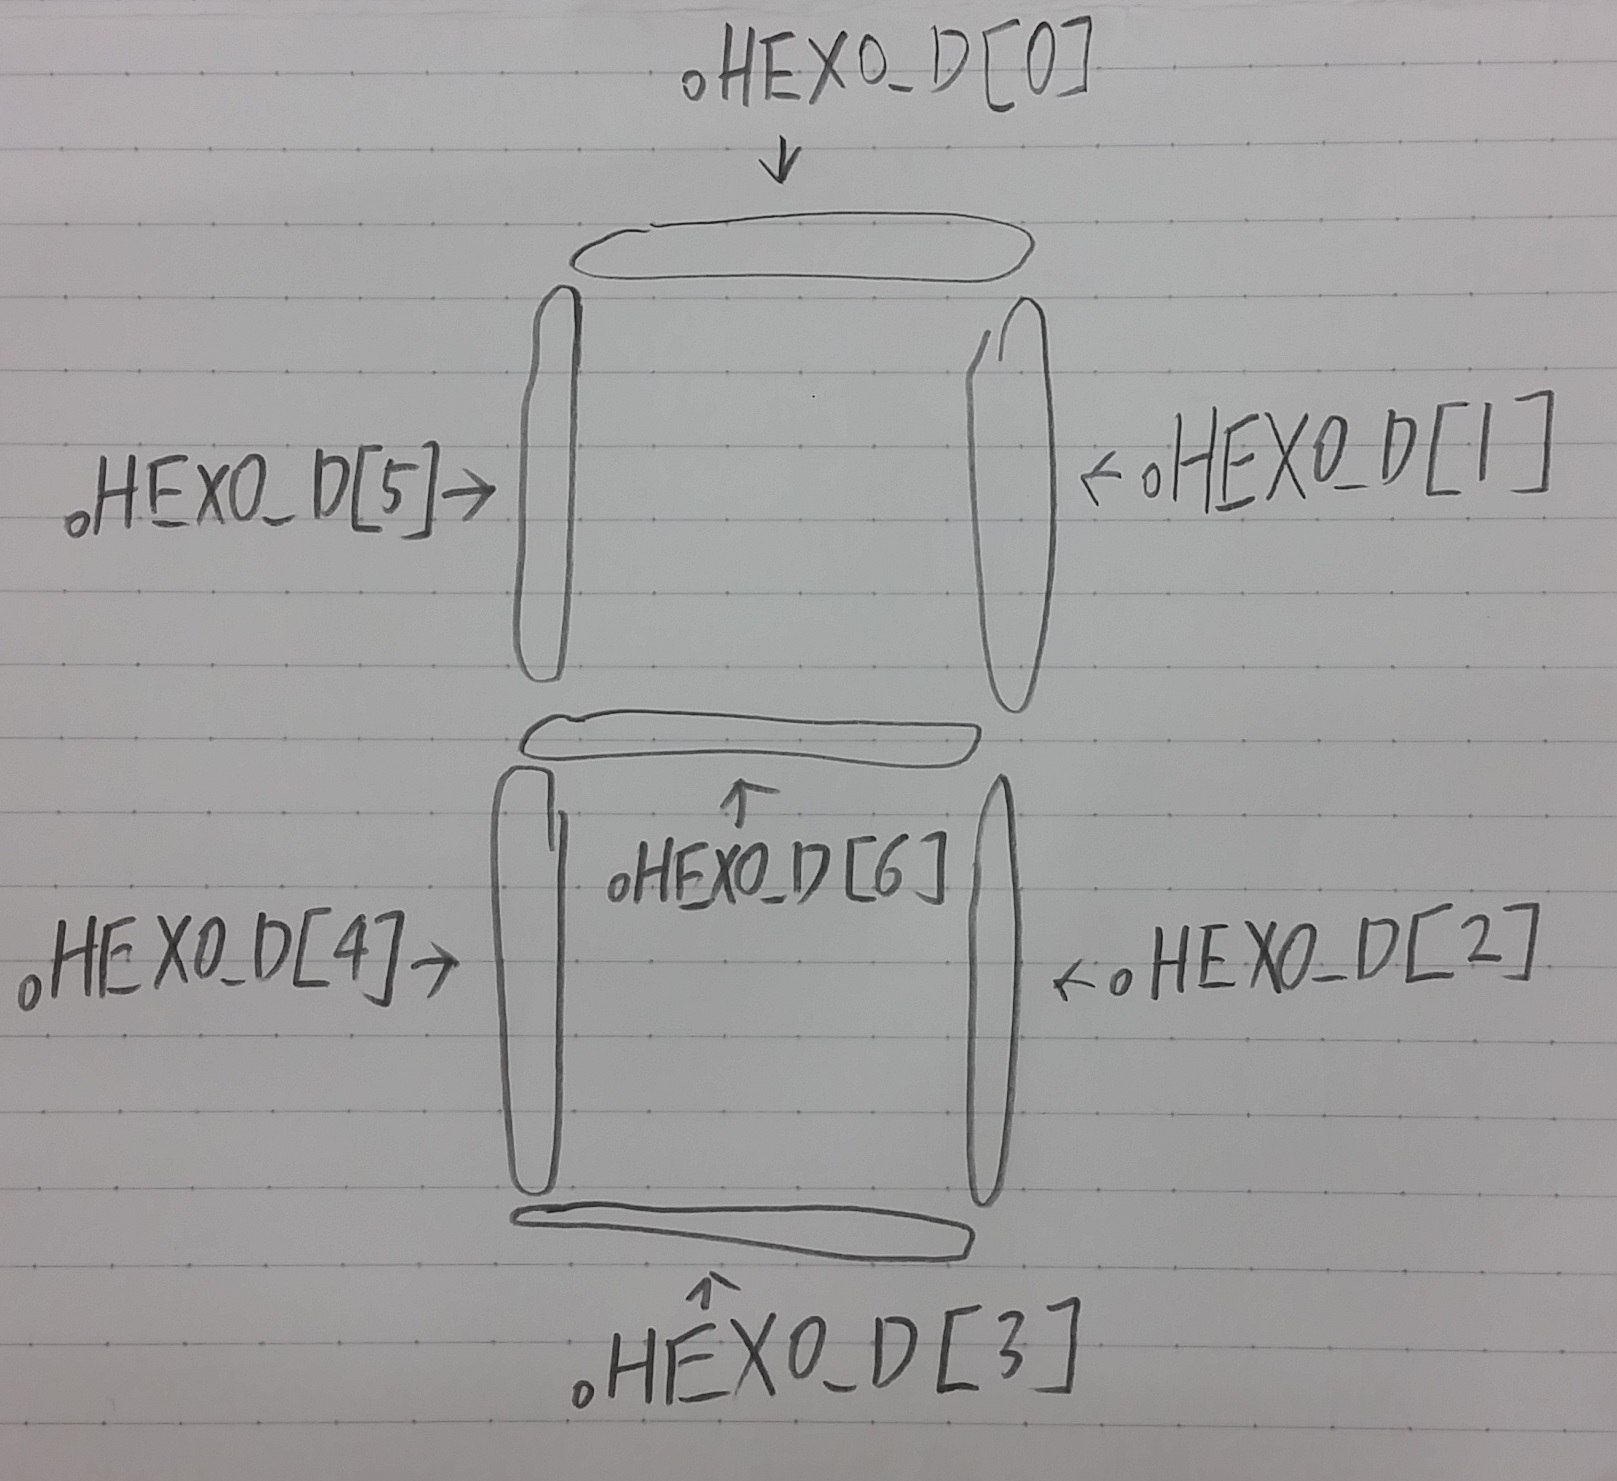 oHEX0_D[0]
↓
oHEX0_D[5]→
←oHEX0_D[1]
↑
oHEX0_D[6]
oHEX0_D[4]→
←oHEX0_D[2]
↑
oHEX0_D[3]